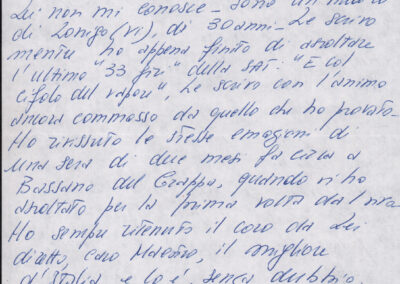 Lei non mi conosce - sono un
di Lonigo (Vi), di 30 anni - Le scrivo
mentre ho appena finito di ascoltare
l'ultimo "33 giri" della SAT: "E col
cifolo del vapore", Le scrivo con l'animo
ancora commosso da quello che ho provato -
Ho rivissuto le stesse emozioni di
una sera di due mesi fa circa a
Bassano del Grappa, quando vi ho
ascoltato per la prima volta dal
Ho sempre ritenuto il coro da Lei
diretto, caro Maestro, il migliore
d'Italia e lo è, senza dubbio,